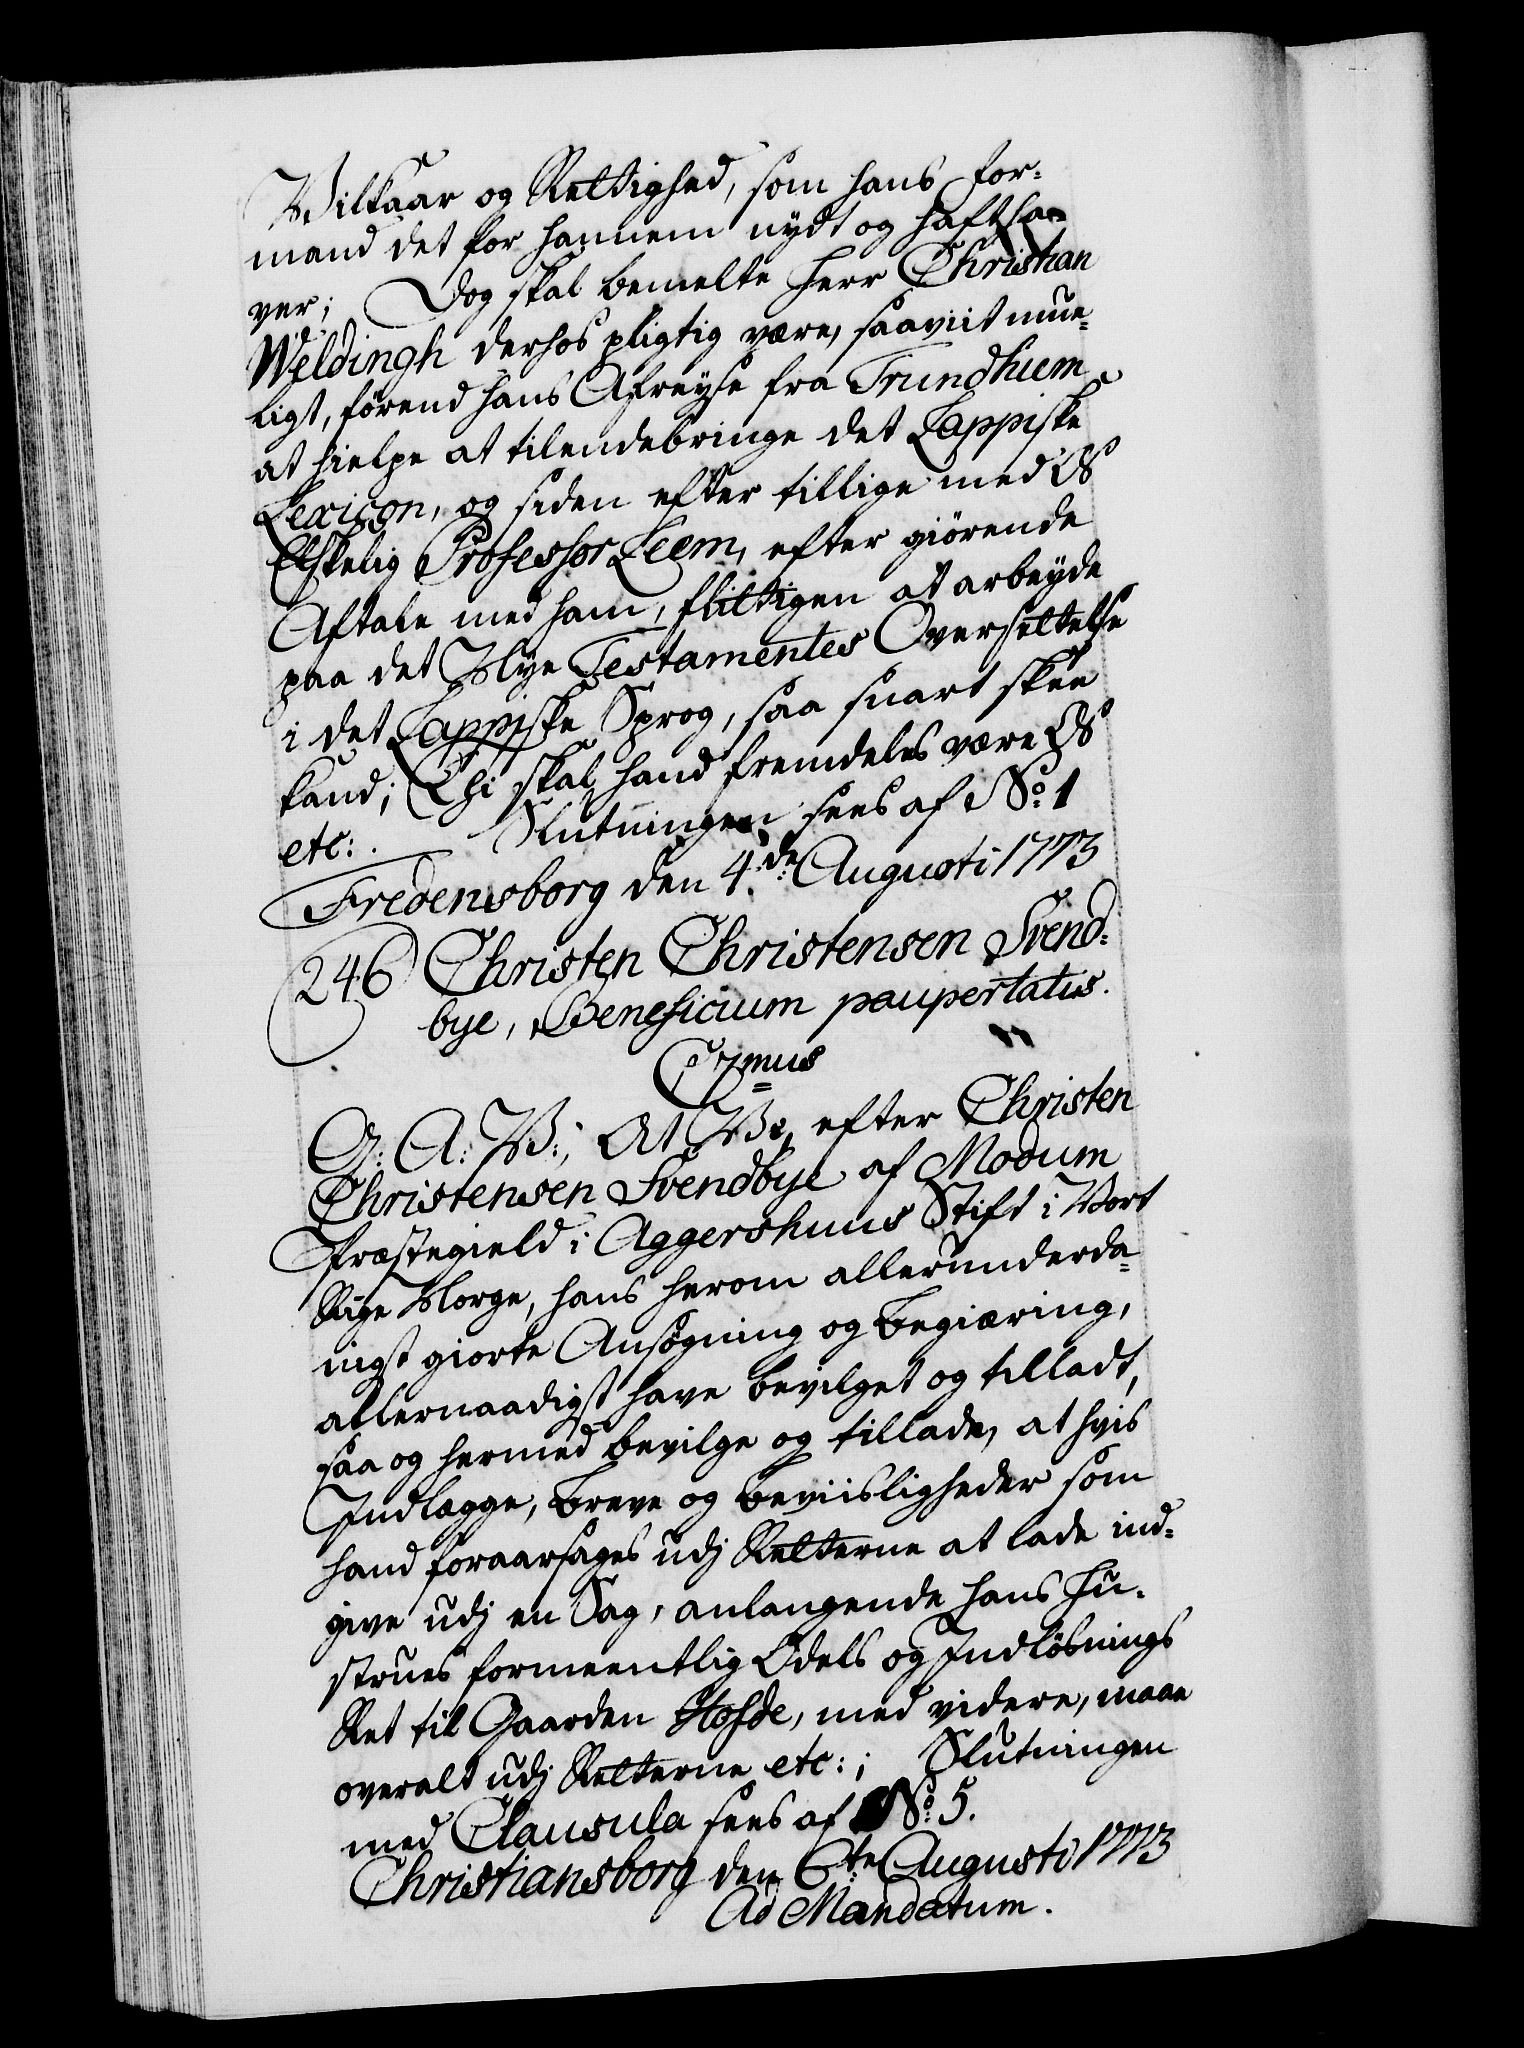 Vilkaar og Rettighed, som hans For-
mand det for hannem nydt og haft ha-
ver; Dog skal bemelte Herr Christian
Weldingh derhos pligtig være, saaviit mue-
ligt, førend hans Afreyse fra Trundhiem
at hielpe at tilendebringe det Lappiske
Lexicon, og siden efter tillige med Os
Elskelig Professor Leem, efter giørende
Aftale med ham, flittigen at arbeyde
paa det Nye Testamentes Oversettelse
i det Lappiske Sprog, saa snart skee
kand; Thi skal hand fremdeles være Os
etc:. Slutningen sees af No: 1
Fredensborg den 4.de Augusti 1773
246 Christen Christensen Svend-
bye, Beneficium paupertatis.
C 7mus
G: A: V:, At Vi, efter Christen
Christensen Svendbye af Modum
Præstegield i Aggershuus Stift i Vort
Rige Norge, hans herom allerunderda-
nigst giorte Ansøgning og Begiæring,
allernaadigst have bevilget og tilladt,
saa og hermed bevilge og tillade, at hvis
Indlægge, Breve og Beviisligheder som
hand foraarsages udj Retterne at lade ind-
give udj en Sag, anlangende hans Hu-
strues formeentlig Odels og Indløsnings
Ret til Gaarden Hofde, med videre, maae
overalt udj Retterne etc:; Slutningen
med Clausula sees af No: 5.
Christiansborg den 6te Augusti 1773
Ad Mandatum.